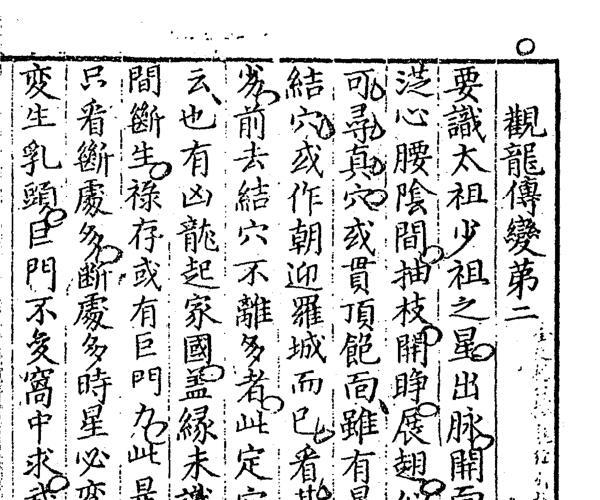 觀龍傳變第二
要識太祖少祖之星出脉開面
從心腰陰間抽枝開睜展翅
可尋真穴或貫頂飽面雖有
結穴或作朝迎羅城而已看其
劣前去結穴不離多者此定
云也有凶龍起家國盖緣未識
間斷生祿存或有巨門力此是
只看斷處多断處多時星必変
変生乳頭巨門不変窩中求